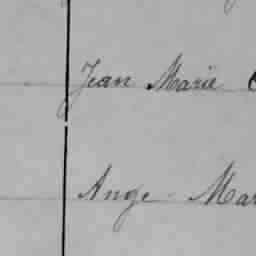 Jean Marie
Ange Mar